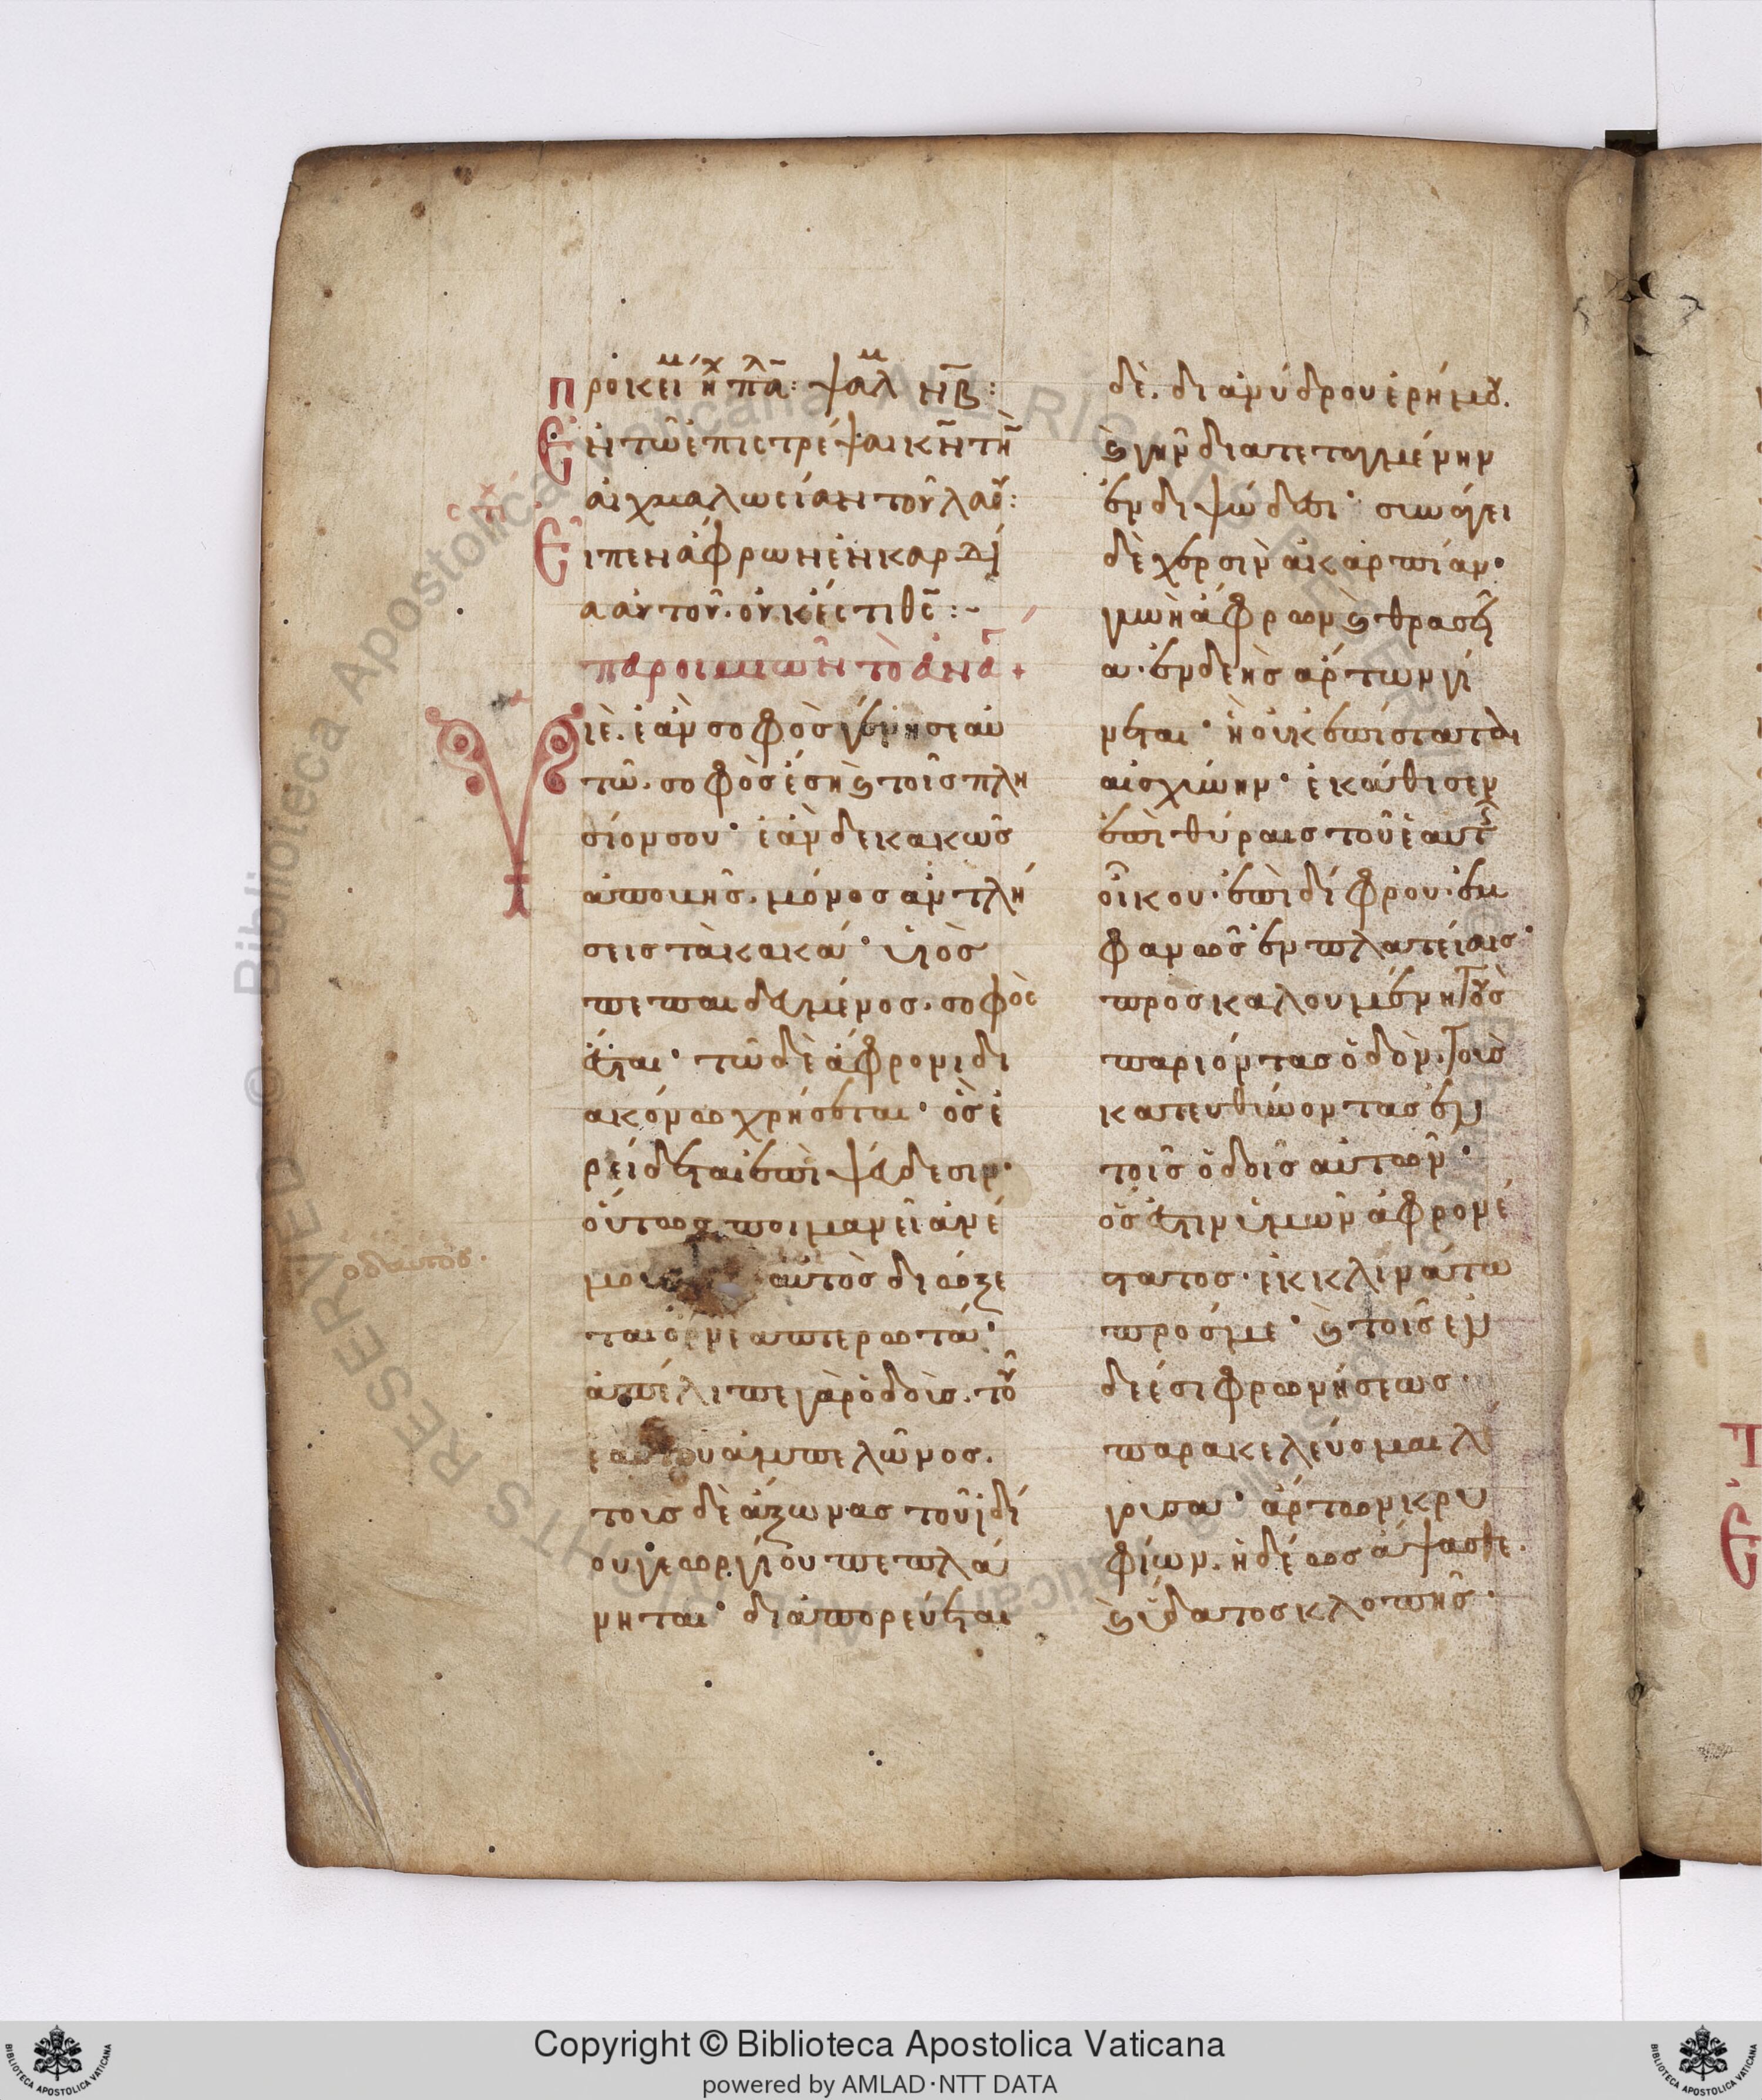 Προκειμ ηχ πλα: ψαλμ ΝΒ:
Ἐν τῶ ἐπιστρέψαι κν τὴν
αἰχμαλωσίαν τοῦ λαοῦ:
στιχ
Εἶπεν ἄφρων ἐν καρδί
α αὐτοῦ. οὐκ ἔστι θς:~
παροιμιῶν τὸ ἀνα +
Υἱὲ. ἐὰν σοφὸς γένη σεαυ
τῶ. σοφὸς ἔση ϗ τοῖς πλη
σίον σου· ἐὰν δε κακῶς
ἀποβῆς. μόνος ἀντλή
σεις τὰ κακά· υἱὸς
πεπαιδευμένος. σοφὸς
ἔσται· τῶ δὲ ἄφρονι δι
ακόνω χρήσεται· ὃς ἐ
ρείδεται ἐπὶ ψεύδεσιν·
οὗτος ποιμανεῖ ἀνέ
μους αὐτὸς διώξε
ὁ δ αυτος.
ται ὄρνεα πτερωτά·
ἀπέλιπε γὰρ ὁδοὺς. τοῦ
ἑαυτοῦ ἀμπελῶνος.
τοὺς δὲ ἄξωνας τοῦ ἰδί
ου γεωργίου πεπλά
νηται· διαπορεύεται
δὲ. δι ἀνύδρου ἐρήμου.
ϗ γῆν διατεταγμένην
ἐν διψώδεσι· συνάγει
δὲ χερσὶν ἀκαρπίαν·
γυνὴ ἄφρων ϗ θρασεῖ
α. ἐνδεὴς ἄρτου γί
νεται· ἣ οὐκ ἐπίσταται
αἰσχύνην· ἐκάθισεν
ἐπὶ θύραις τοῦ ἑαυτῆς
οἴκου. ἐπὶ δίφρου. ἐμ
φανῶς ἐν πλατείαις·
προσκαλουμένη τοὺς
παριόντας ὁδὸν. τοὺς
κατευθύνοντας ἐν
τοῖς ὁδοῖς αὐτῶν·
ὅς ἐστιν ὑμῶν ἀφρονέ
στατος. ἐκκλινάτω
πρός με· ϗ τοῖς ἐν
δεέσι φρονήσεως.
παρακελεύομαι λέ
γουσα· ἄρτων κρυ
φίων. ἡδέως ἅψασθε.
ϗ ὕδατος κλοπῆς·
Copyright © Biblioteca Apostolica Vaticana
powered by AMLAD·NTT DATA